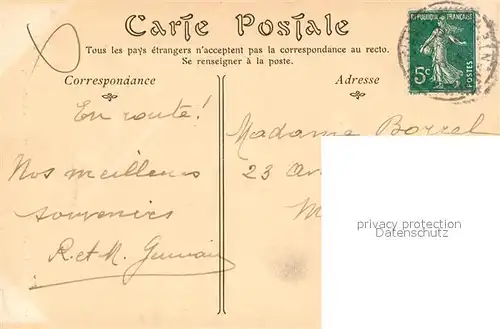 Carte Postale
Tous les pays étrangers n'acceptent pas la correspondance au recto.
Se renseigner à la poste.
Correspondance
Adresse
RÉPUBLIQUE FRANÇAISE
5c
POSTES
En route!
Nos meilleurs
souvenirs
R. et M.
Madame Borrel
23
privacy protection
Datenschutz